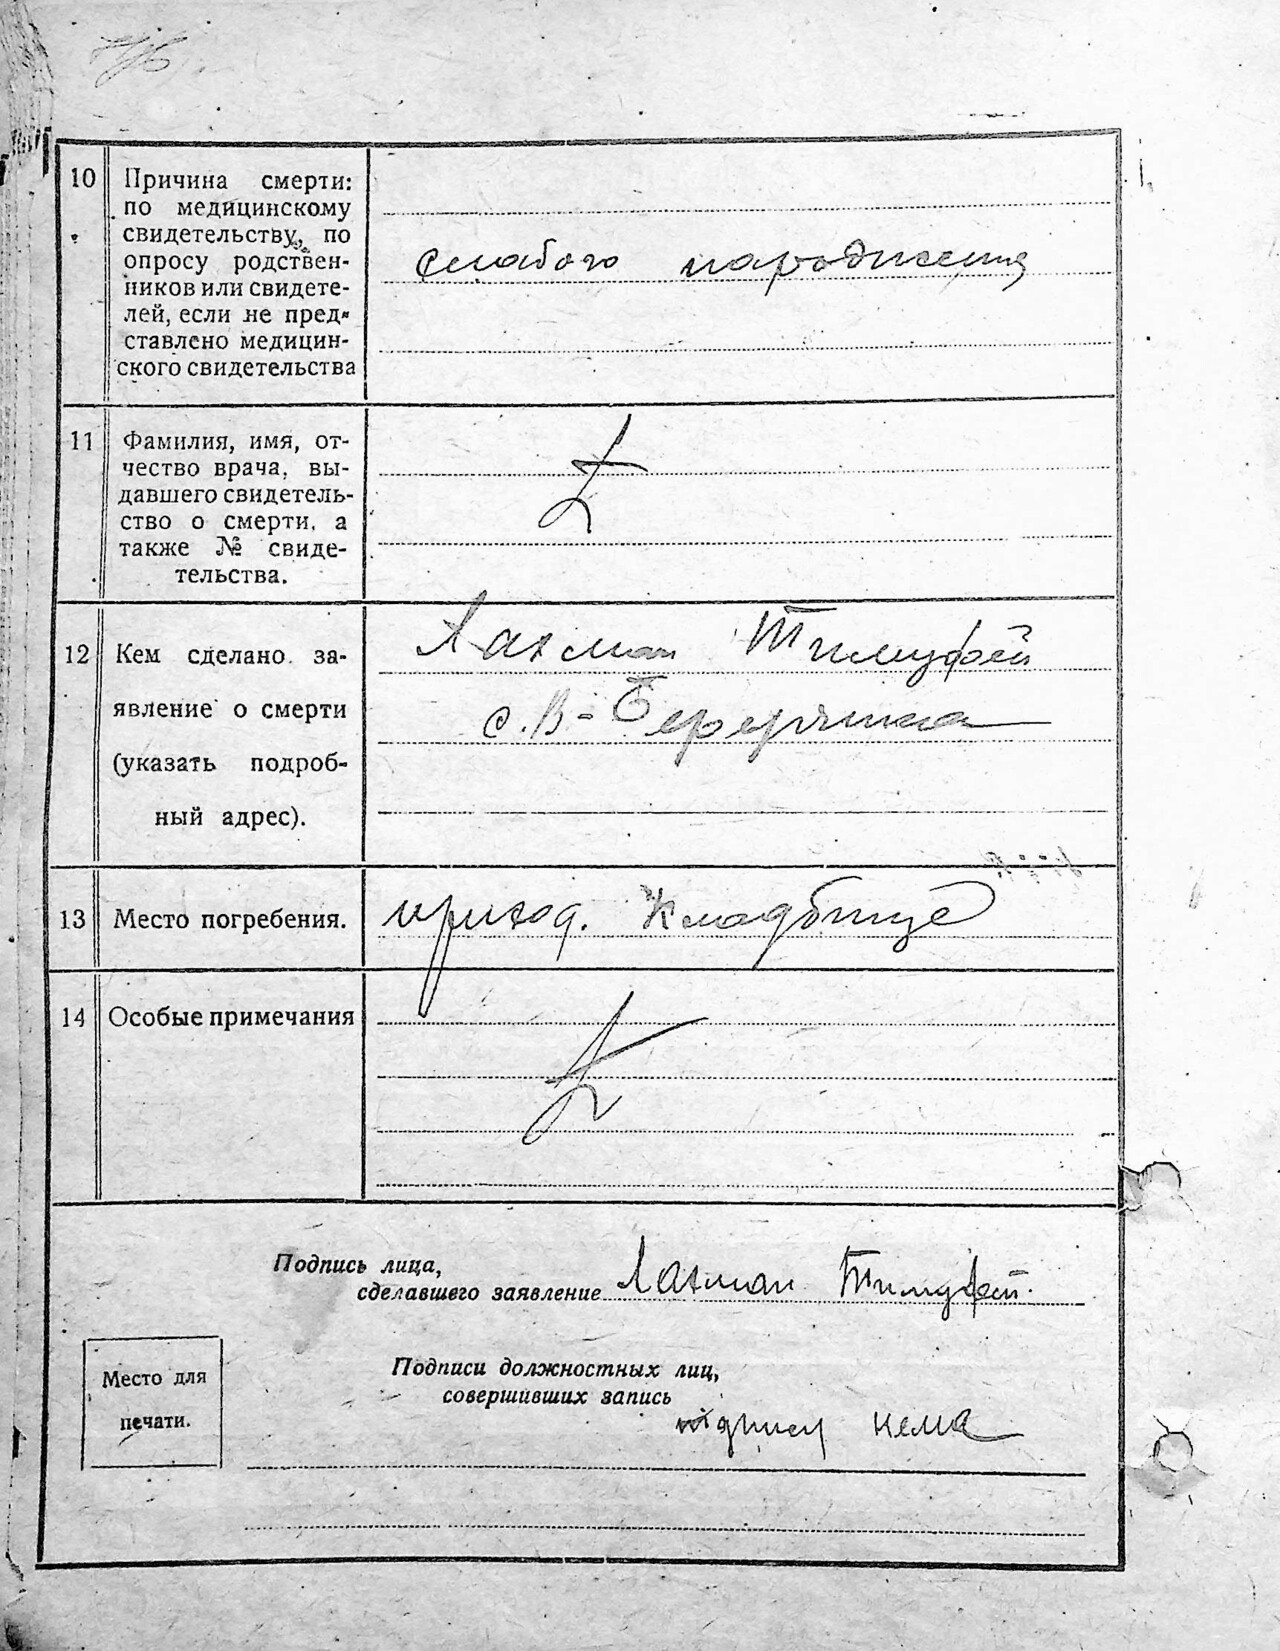 10 Причина смерти:
по медицинскому
свидетельству, по
опросу родствен-
ников или свидете-
лей, если не пред-
ставлено медицин-
ского свидетельства
слабого народження
11 Фамилия, имя, от-
чество врача, вы-
давшего свидетель-
ство о смерти, а
также № свиде-
тельства.
12 Кем сделано за-
явление о смерти
(указать подроб-
ный адрес).
Лахман Тимуфей
с. В-
13 Место погребения.
приход. Кладбище
14 Особые примечания
Подпись лица,
сделавшего заявление Лахман Тимуфей.
Место для
печати.
Подписи должностных лиц,
совершивших запись
підпису нема